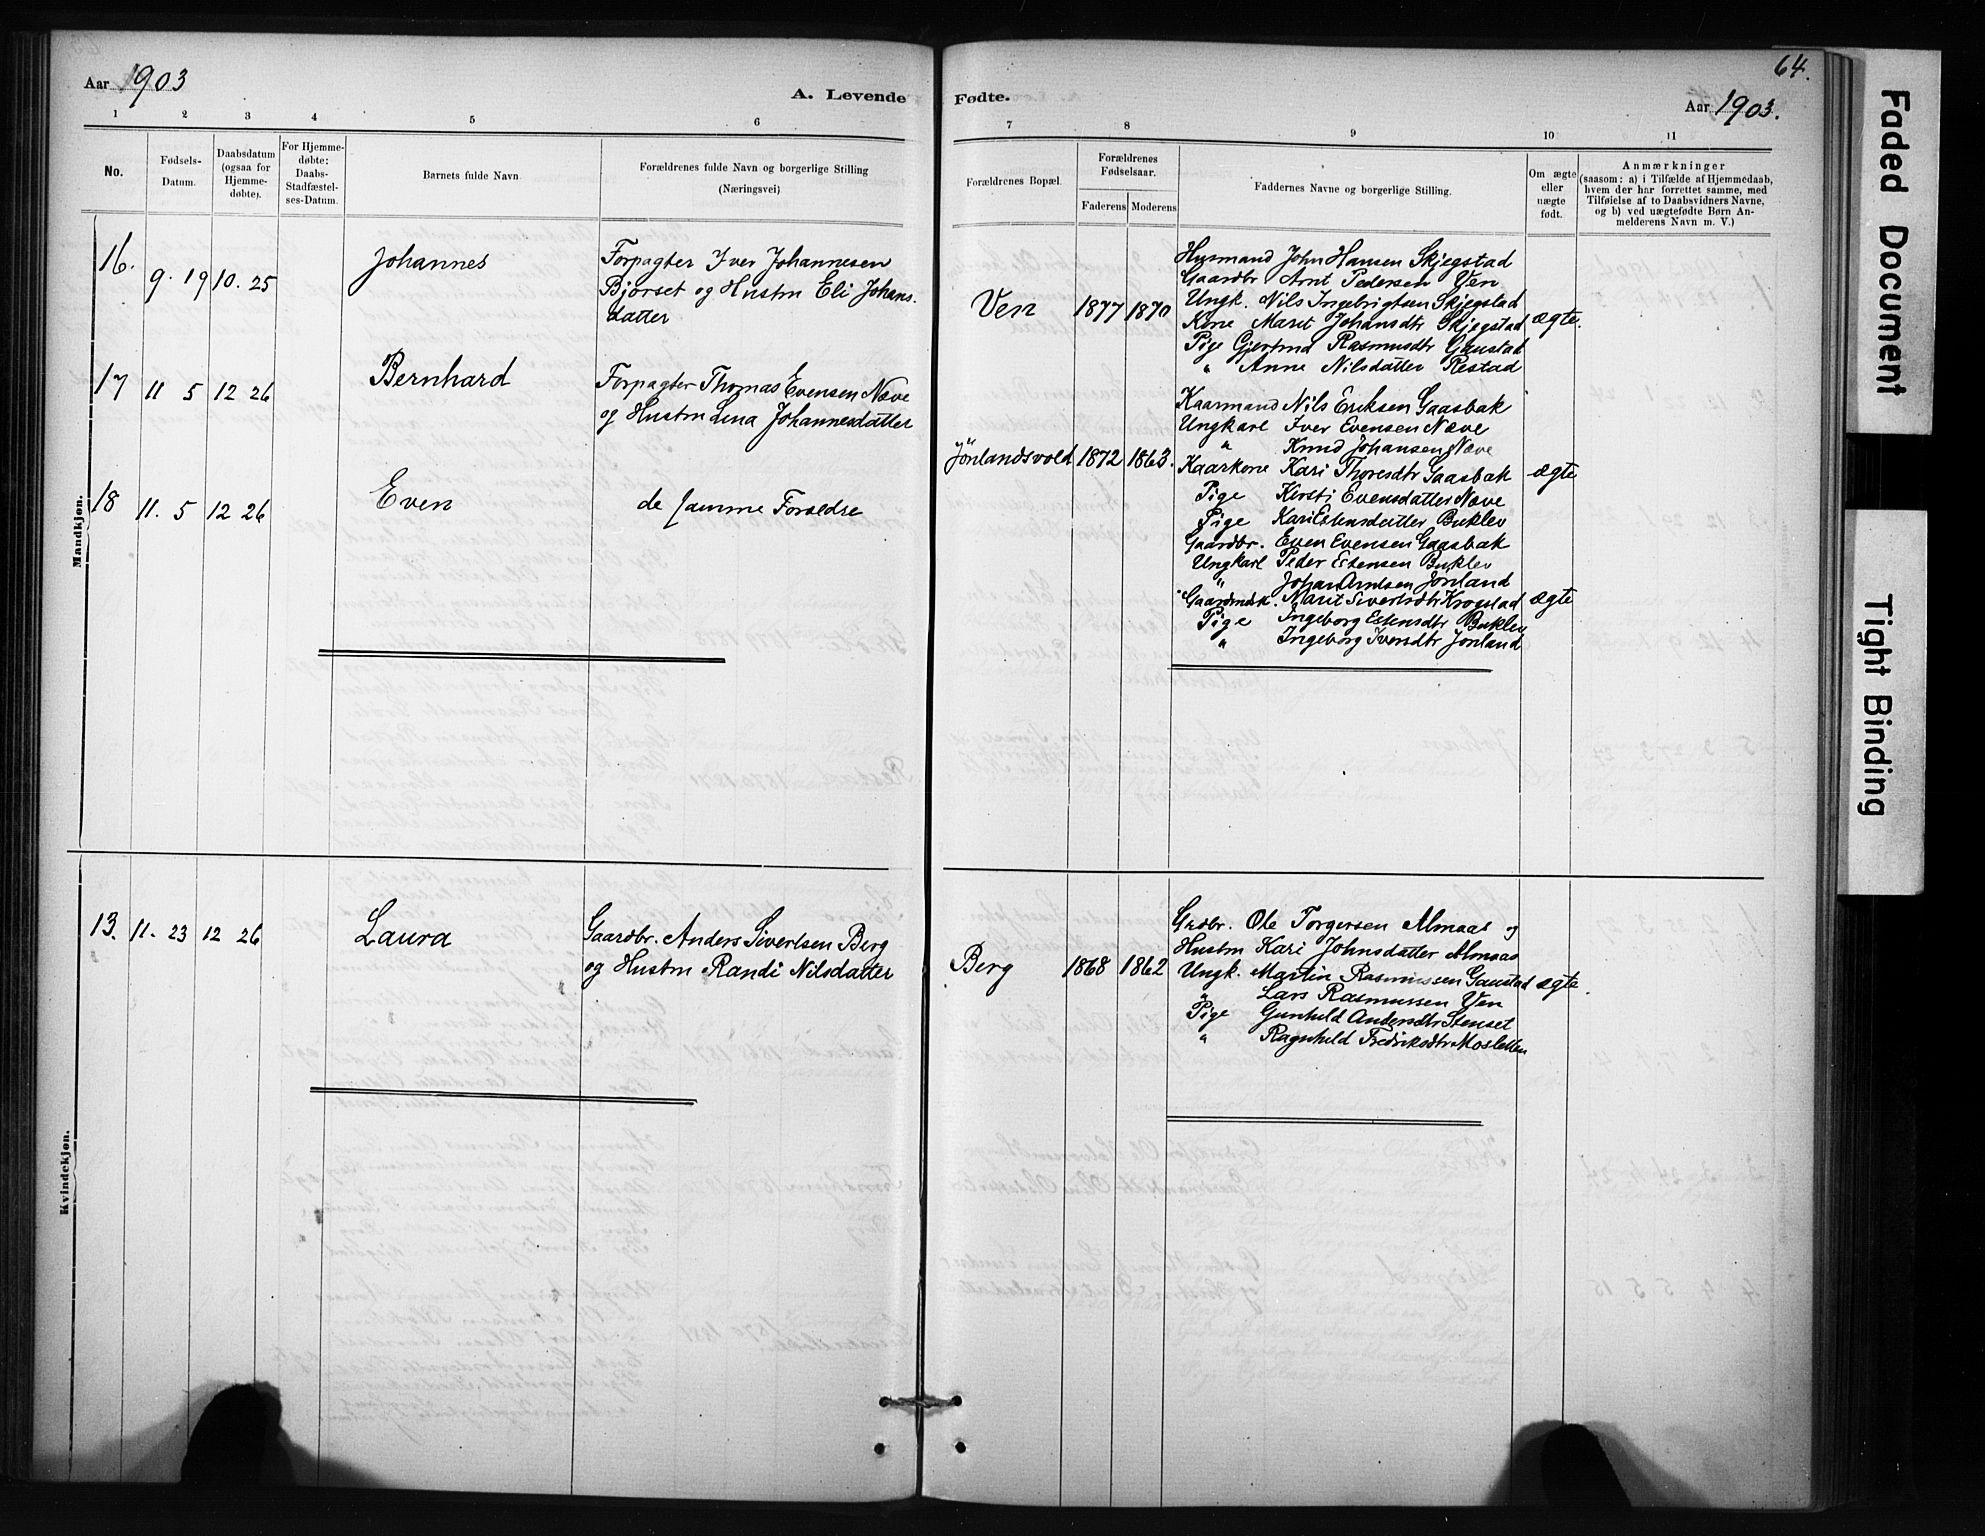 Aar 1903
A. Levende Fødte.
64.
Aar 1903.
1 2 3 4 5 6 7 8 9 10 11
No.
Fødsels-
Datum.
Daabsdatum
(ogsaa for
Hjemme-
døbte).
For Hjemme-
døbte:
Daabs-
Stadfæstel-
ses-Datum.
Barnets fulde Navn
Forældrenes fulde Navn og borgerlige Stilling
(Næringsvei)
Forældrenes Bopæl.
Forældrenes
Fødselsaar.
Faderens Moderens
Faddernes Navne og borgerlige Stilling.
Om ægte
eller
uægte
født.
Anmærkninger
(saasom: a) i Tilfælde af Hjemmedaab,
hvem der har forrettet samme, med
Tilføielse af to Daabsvidners Navne,
og b) ved uægtefødte Børn An-
melderens Navn m. V.)
Mandkjøn.
16. 9. 19 10. 25 Johannes
Forpagter Iver Johannesen
Bjørset og Hustru Eli Johans-
datter
Ven 1877 1870
Husmand John Hansen Skjegstad
Gaardbr Arnt Pedersen Ven
Ungk. Nils Ingebrigtsen Skjegstad
Kone Marit Johansdtr Skjegstad
Pige Gjertrud Rasmusdtr Gaustad
" Anne Nilsdatter Restad
ægte.
17 11 5 12 26 Bernhard
Forpagter Thomas Evensen Næve
og Hustru Lina Johannesdatter
Jönlandsvold 1872 1863.
Kaarmand Nils Eriksen Gaasbak
Ungkarl Iver Evensen Næve
" Knud Johansen Næve
Kaarkone Kari Thoresdtr Gaasbak
Pige Kirsti Evensdatter Næve
Pige Kari Estensdatter Buklev
ægte
18 11. 5 12 26 Even
de samme Forældre
Gaardbr. Even Evensen Gaasbak
Ungkarl Peder Estensen Buklev
" Johan Arntsen Jönland
Gaardmdk. Marit Sivertsdtr Krogstad
Pige Ingeborg Estensdtr Buklev
" Ingeborg Iversdtr Jönland
ægte
Kvindekjøn.
13. 11. 23 12 26 Laura
Gaardbr. Anders Sivertsen Berg
og Hustru Randi Nilsdatter
Berg 1868 1862
Grdbr. Ole Torgersen Almaas og
Hustru Kari Johnsdatter Almaas
Ungk. Martin Rasmussen Gaustad
" Lars Rasmussen Ven
Pige Gunhild Andersdtr Stenset
" Ragnhild Fredriksdtr Mosletten
ægte.
Faded Document
Tight Binding